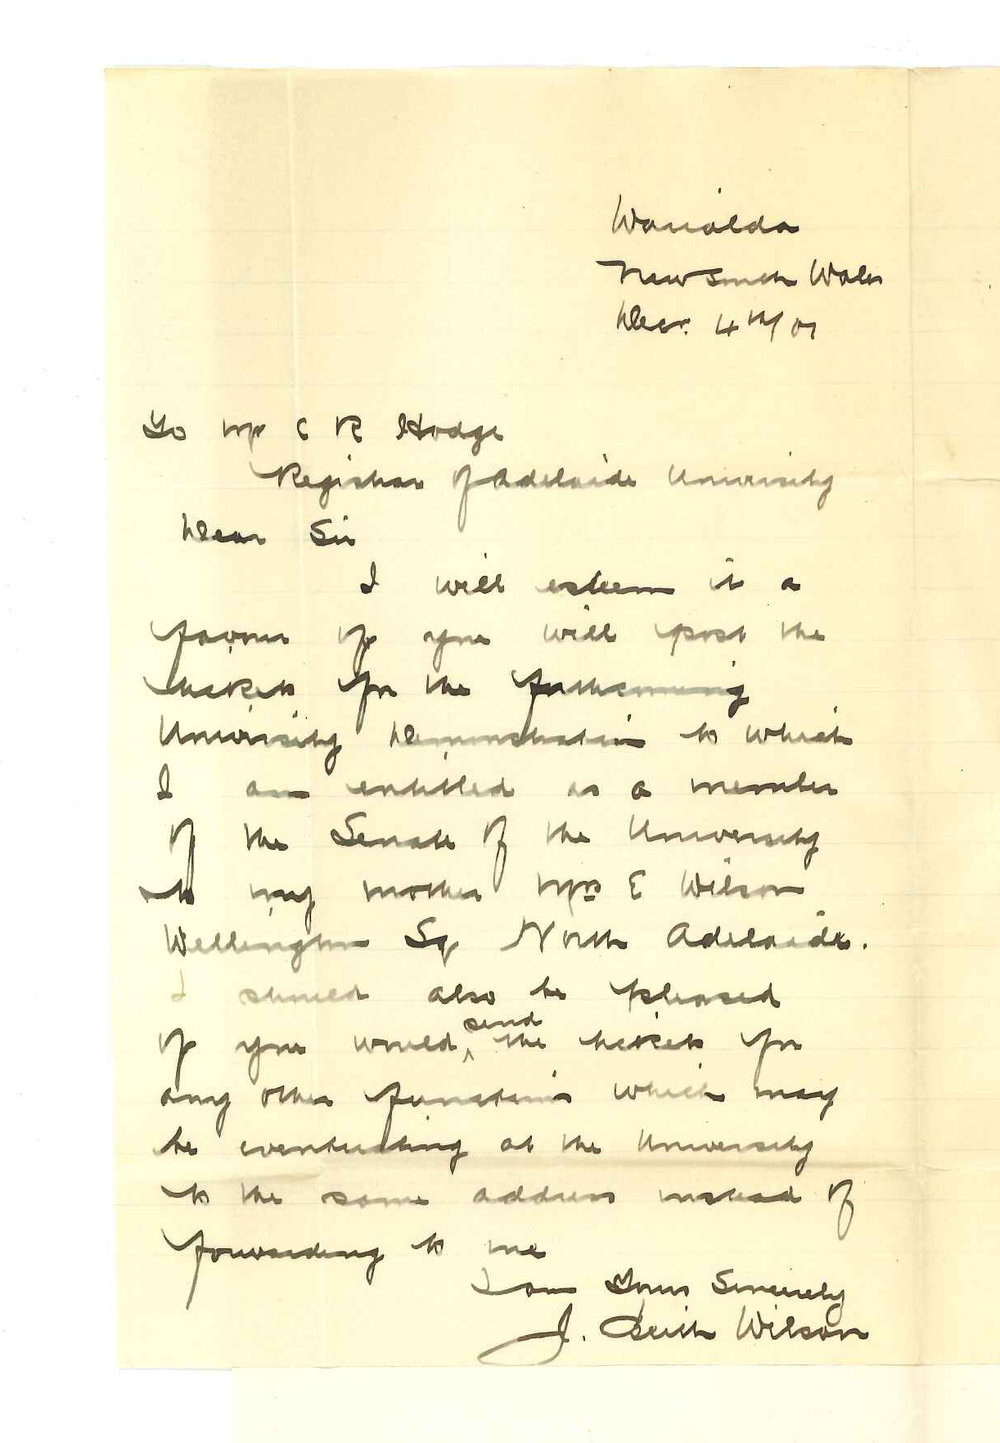 Warialda
New South Wales
Dec. 4th/07
To Mr C R Hodge
Registrar of Adelaide University
Dear Sir
I will esteem it a
favour if you will post the
tickets for the forthcoming
University Demonstration to which
I am entitled as a member
of the Senate of the University
to my mother Mrs E Wilson
Wellington Sq North Adelaide.
I should also be pleased
if you would send the tickets for
any other functions which may
be eventuating at the University
to the same address instead of
forwarding to me
I am Yours Sincerely
J. Beith Wilson